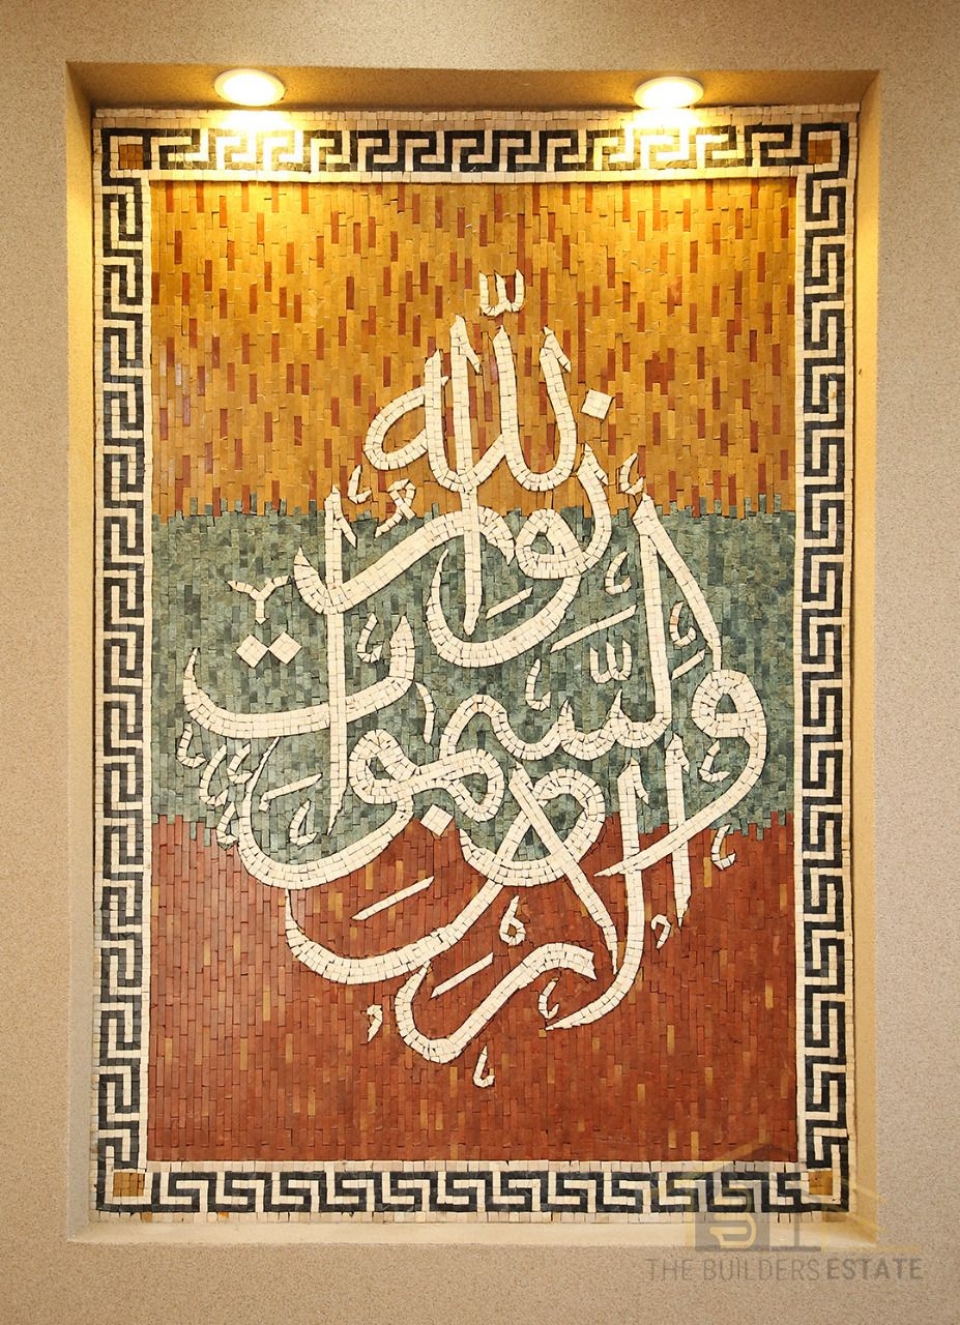 الله نور السموات والارض
THE BUILDERS ESTATE